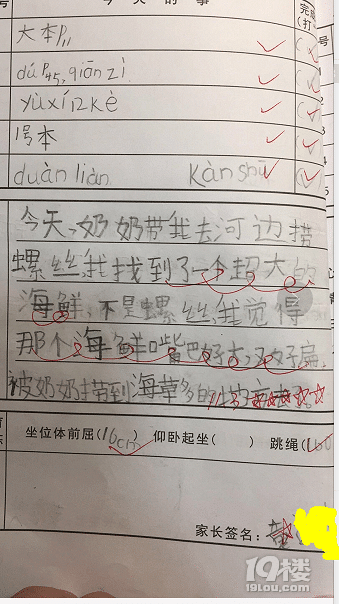 今天的事
完成
(打
号
大本P11
dú P45, qiān zì
yùxí 12kè
1号本
duàn liàn kàn shū
今天,奶奶带我去河边捞
螺丝我找到了一个超大的
海鲜,不是螺丝,我觉得
那个海鲜嘴巴好大,又好扁,
被奶奶带到海草多的地方去了。
坐位体前屈(16cm) 仰卧起坐( ) 跳绳(160
家长签名:
19楼
19lou.com